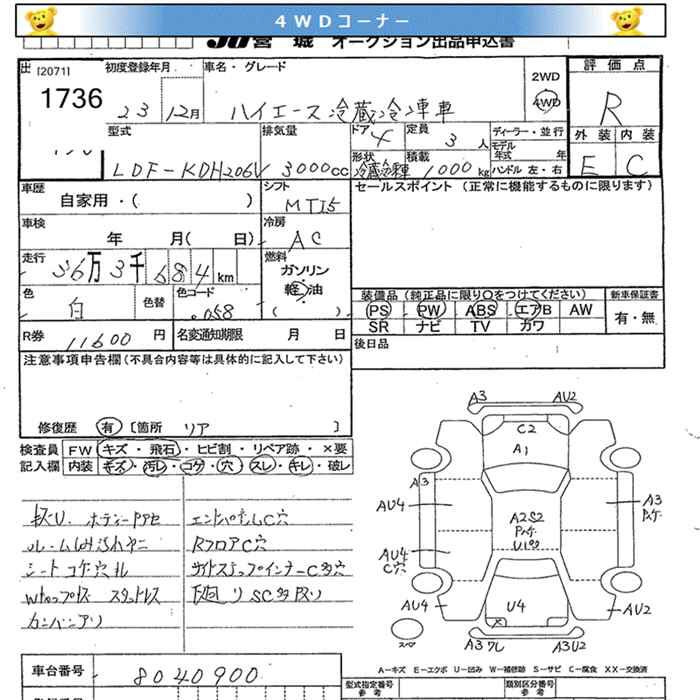 ４ＷＤコーナー
JU宮城 オークション出品申込書
出 [2071]
1736
初度登録年月
23 12月
車名・グレード
ハイエース冷蔵冷凍車
2WD
4WD
評価点
R
外装 内装
E C
型式
LDF-KDH206V
排気量
3000cc
ドア 4
定員 3 人
形状
積載 1000 kg
ディーラー・並行
モデル年式 年
ハンドル 左・右
車歴
自家用・( )
シフト
MTI5
セールスポイント (正常に機能するものに限ります)
車検
年 月( 日)
冷房
AC
走行
36万3千684km
燃料
ガソリン
軽油
( )
色
白
色替
色コード
058
装備品(純正品に限り〇をつけてください)
新車保証書
PS PW ABS エアB AW
SR ナビ TV カワ
有・無
R券 11600 円
名変通知期限 月 日
後日品
注意事項申告欄(不具合内容等は具体的に記入して下さい)
修復歴 有 [箇所 リア ]
検査員
記入欄
FW キズ・飛石・ヒビ割・リペア跡・×要
内装 キズ・汚レ・コゲ・穴・スレ・キレ・破レ
エンドパネルC穴
RフロアC穴
シートコゲ穴
サイドステップインナーC多穴
スタットレス
カンバンアリ
車台番号 8040900
A3 AU2
C2
A1
A3
AU4
A3
A2S2
AU4
C穴
AU4
U4
AU2
A3
A3U2
A－キズ E－エクボ U－凹み W－補修跡 S－サビ C－腐食 XX－交換済
型式指定番号
参考
類別区分番号
参考